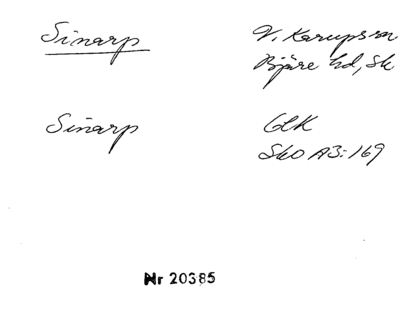 Sinarp
V. Karups sn
Bjäre hd, Sk
Sinarp
GLK
Sko A3:169
Nr 20385